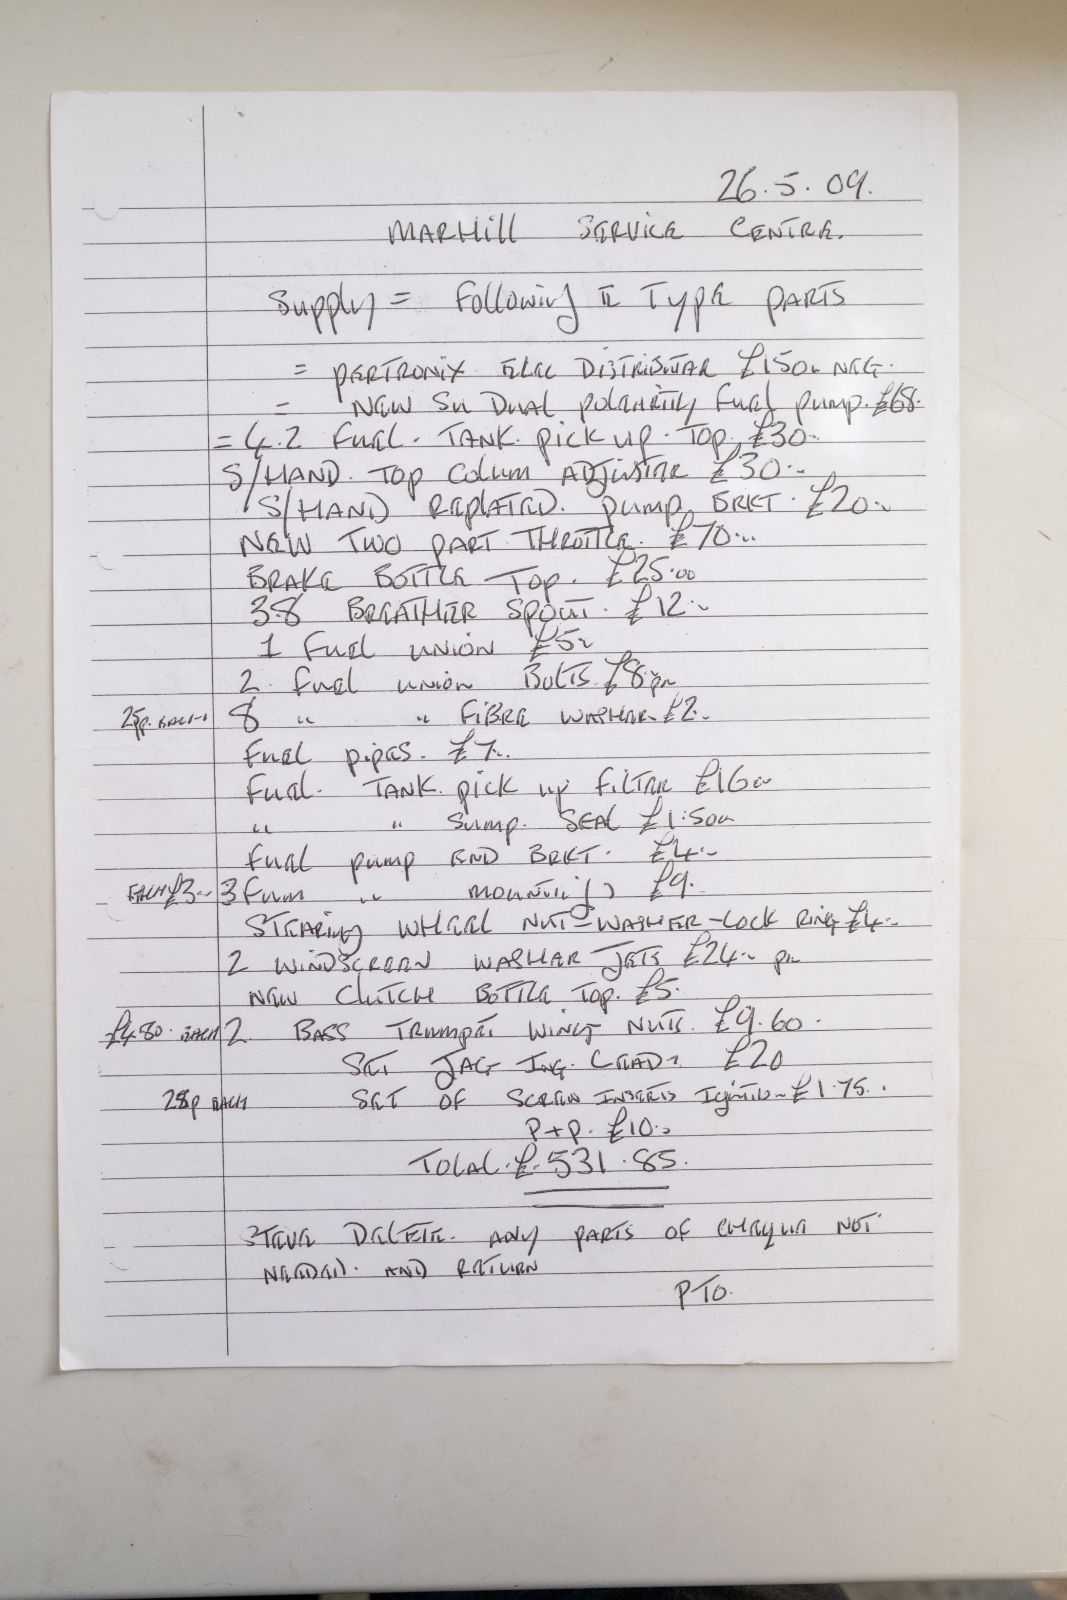 26.5.09.
MARHill SERVICE CENTRE.
Supply = Following E Type PARTS
= PERTRONIX ELEC DISTRIBUTAR £150. NEG.
= NEW SU DUAL POLARITY FUEL PUMP. £68.
= 4.2 FUEL. TANK. pick up. Top. £30..
S/HAND. TOP COLUM ADJUSTER £30..
S/HAND REPLATED. pump BRKT. £20.
NEW TWO PART THROTTLE. £70...
BRAKE BOTTLE TOP. £25.00
3.8 BREATHER SPOUT. £12.
1 FUEL UNION £5
2. FUEL UNION BOLTS. £8 pr
25p. EACH 8 " " FIBRE WASHER £2.
FUEL pipes. £7..
FUEL. TANK. pick up FILTER £16
" " SUMP. SEAL £1.50
FUEL pump END BRKT. £4.
EACH £3.. 3 " MOUNTING £9.
STEARING WHEEL NUT-WASHER-LOCK RING £4.
2 WINDSCREEN WASHER JETS £24.. pr
NEW CLUTCH BOTTLE TOP. £5.
£4.80. EACH 2. BASS TRUMPET WING NUTS. £9.60.
SET JAG ING. LEADS £20
28p EACH SET OF SCREW INSERTS Ignition £1.75.
P+P. £10.
TOTAL. £. 531.85.
STEVE DELETE. ANY PARTS OF CHEQUE NOT
NEEDED. AND RETURN
PTO.